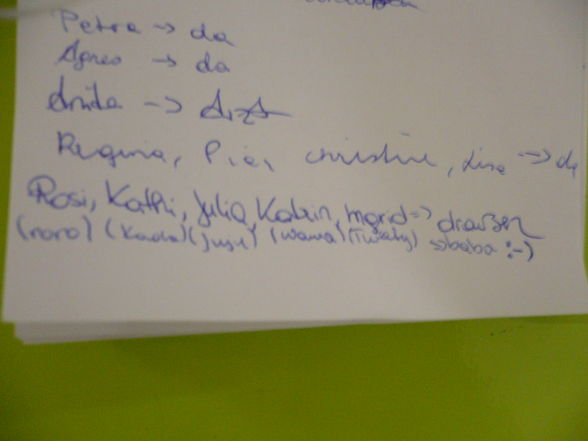 Petra -> da
Agnes -> da
Anida -> Arzt
Regina, Pia, Christine, Lisa -> da
Rosi, Kathi, Julia, Katrin, Ingrid => draußen
(roro) (Kada) (juju) (wawa) (Twixly) sbaba :-)